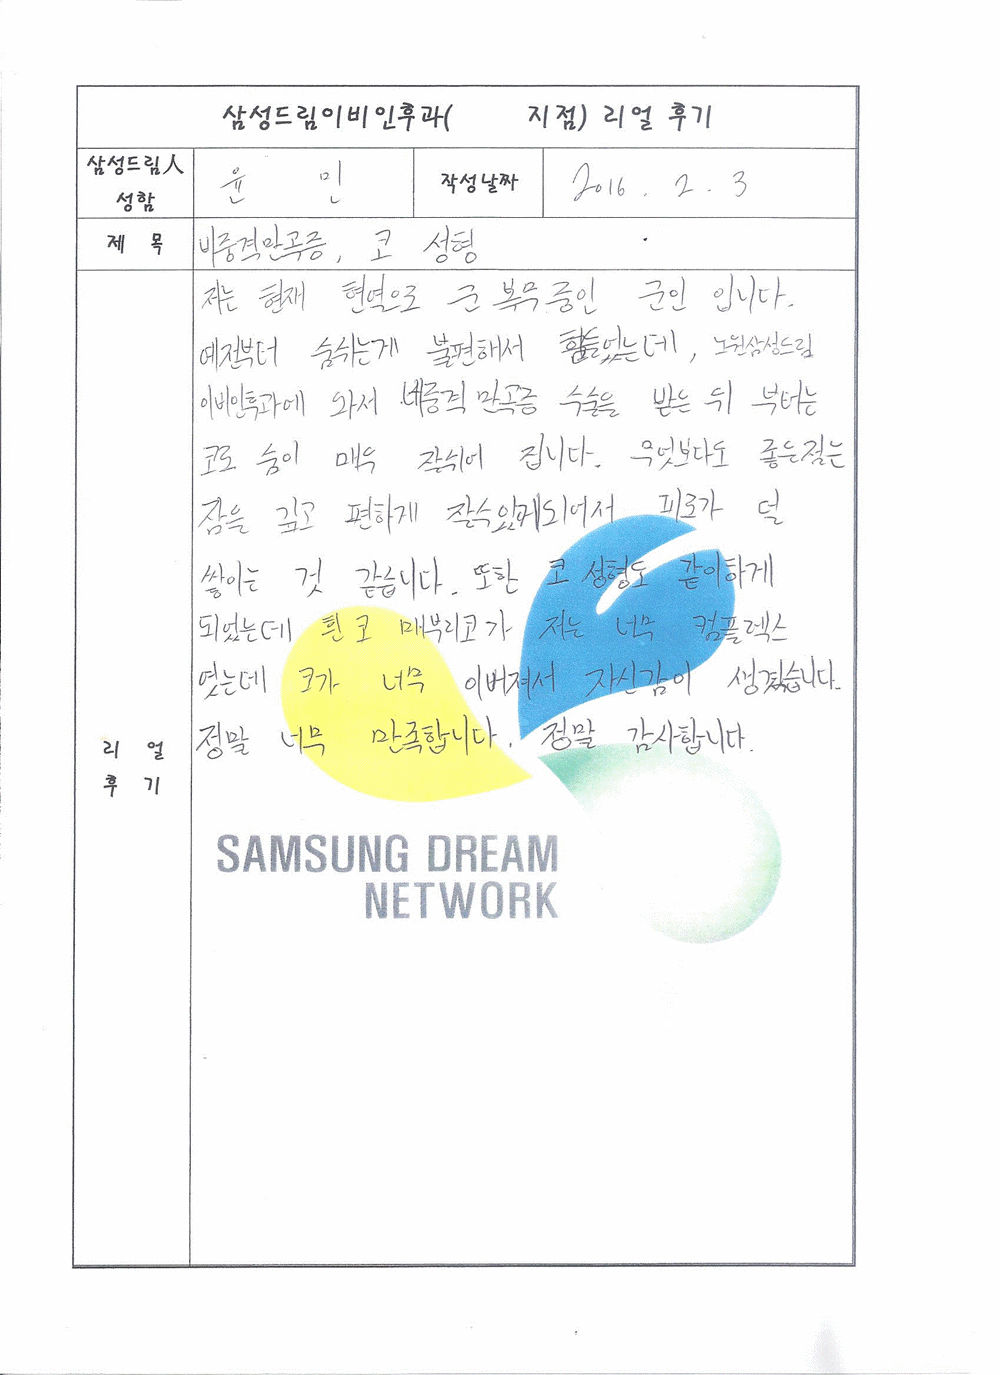 삼성드림이비인후과( 지점) 리얼 후기
삼성드림人 성함
윤 민
작성날짜
2016. 2. 3
제 목
비중격만곡증, 코 성형
저는 현재 현역으로 군 복무중인 군인 입니다.
예전부터 숨쉬는게 불편해서 힘들었는데, 노원삼성드림
이비인후과에 와서 비중격 만곡증 수술을 받은 뒤 부터는
코로 숨이 매우 잘쉬어 집니다. 무엇보다도 좋은점은
잠을 깊고 편하게 잘수있게되어서 피로가 덜
쌓이는 것 같습니다. 또한 코 성형도 같이하게
되었는데 휜 코 매부리코가 저는 너무 컴플렉스
였는데 코가 너무 이버져서 자신감이 생겼습니다.
정말 너무 만족합니다. 정말 감사합니다.
리 얼
후 기
SAMSUNG DREAM
NETWORK